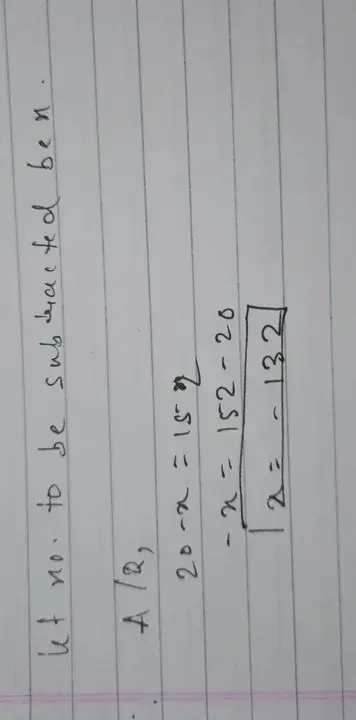 let no. to be subtracted be x.
A/Q,
20 - x = 152
- x = 152 - 20
x = - 132